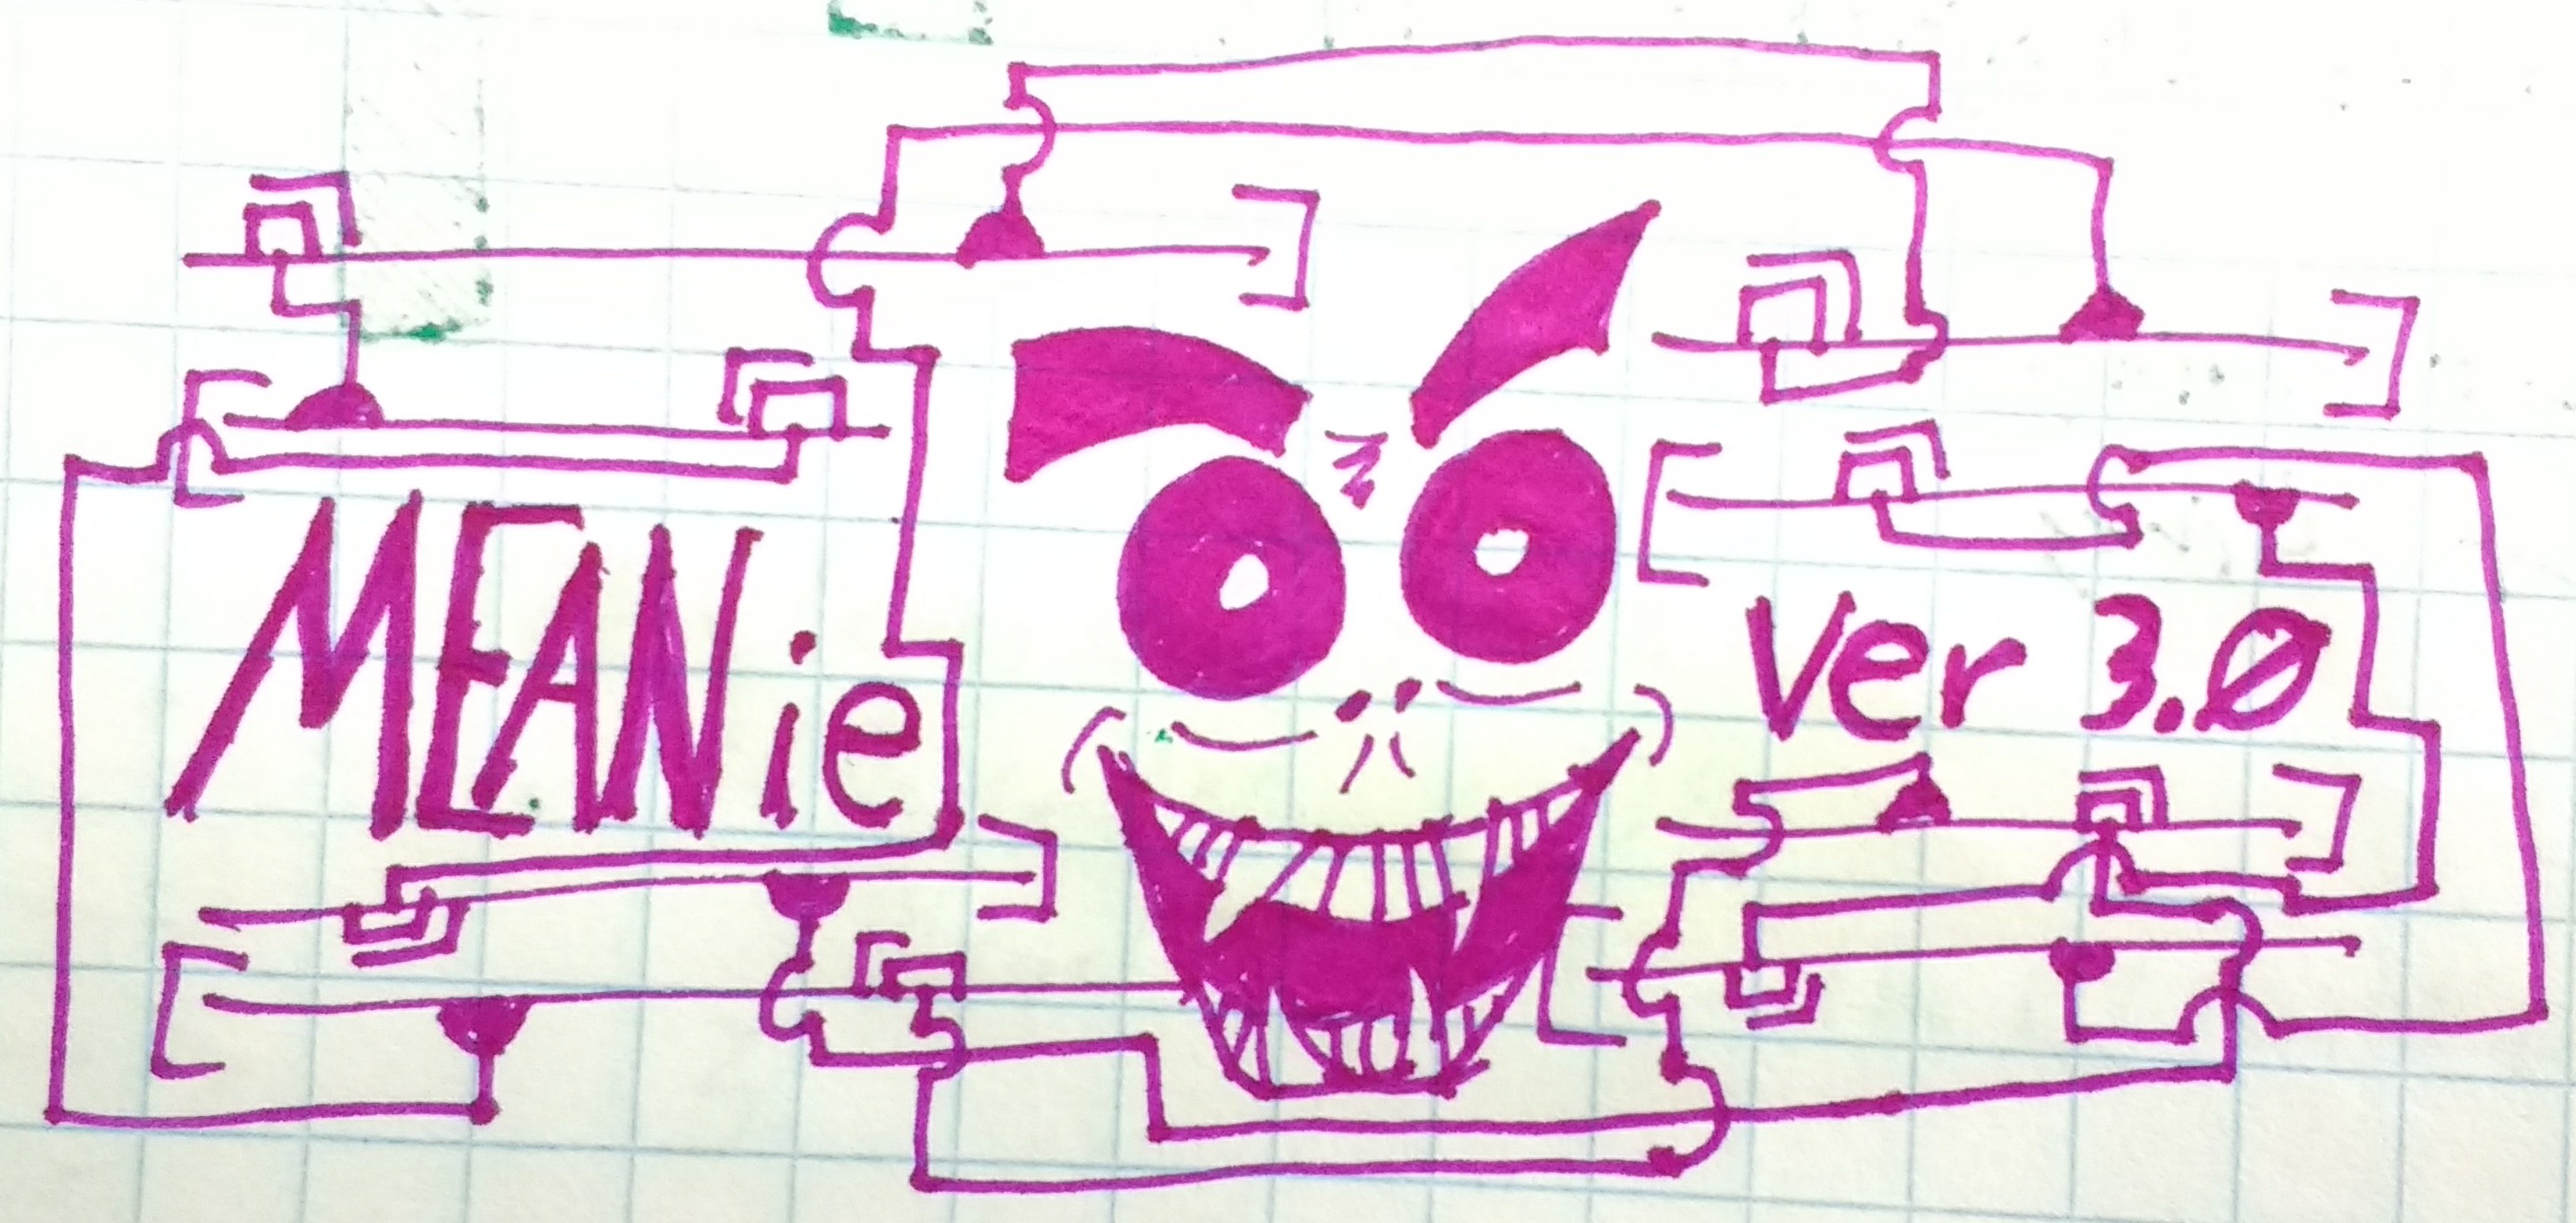 MEANie
Ver 3.0